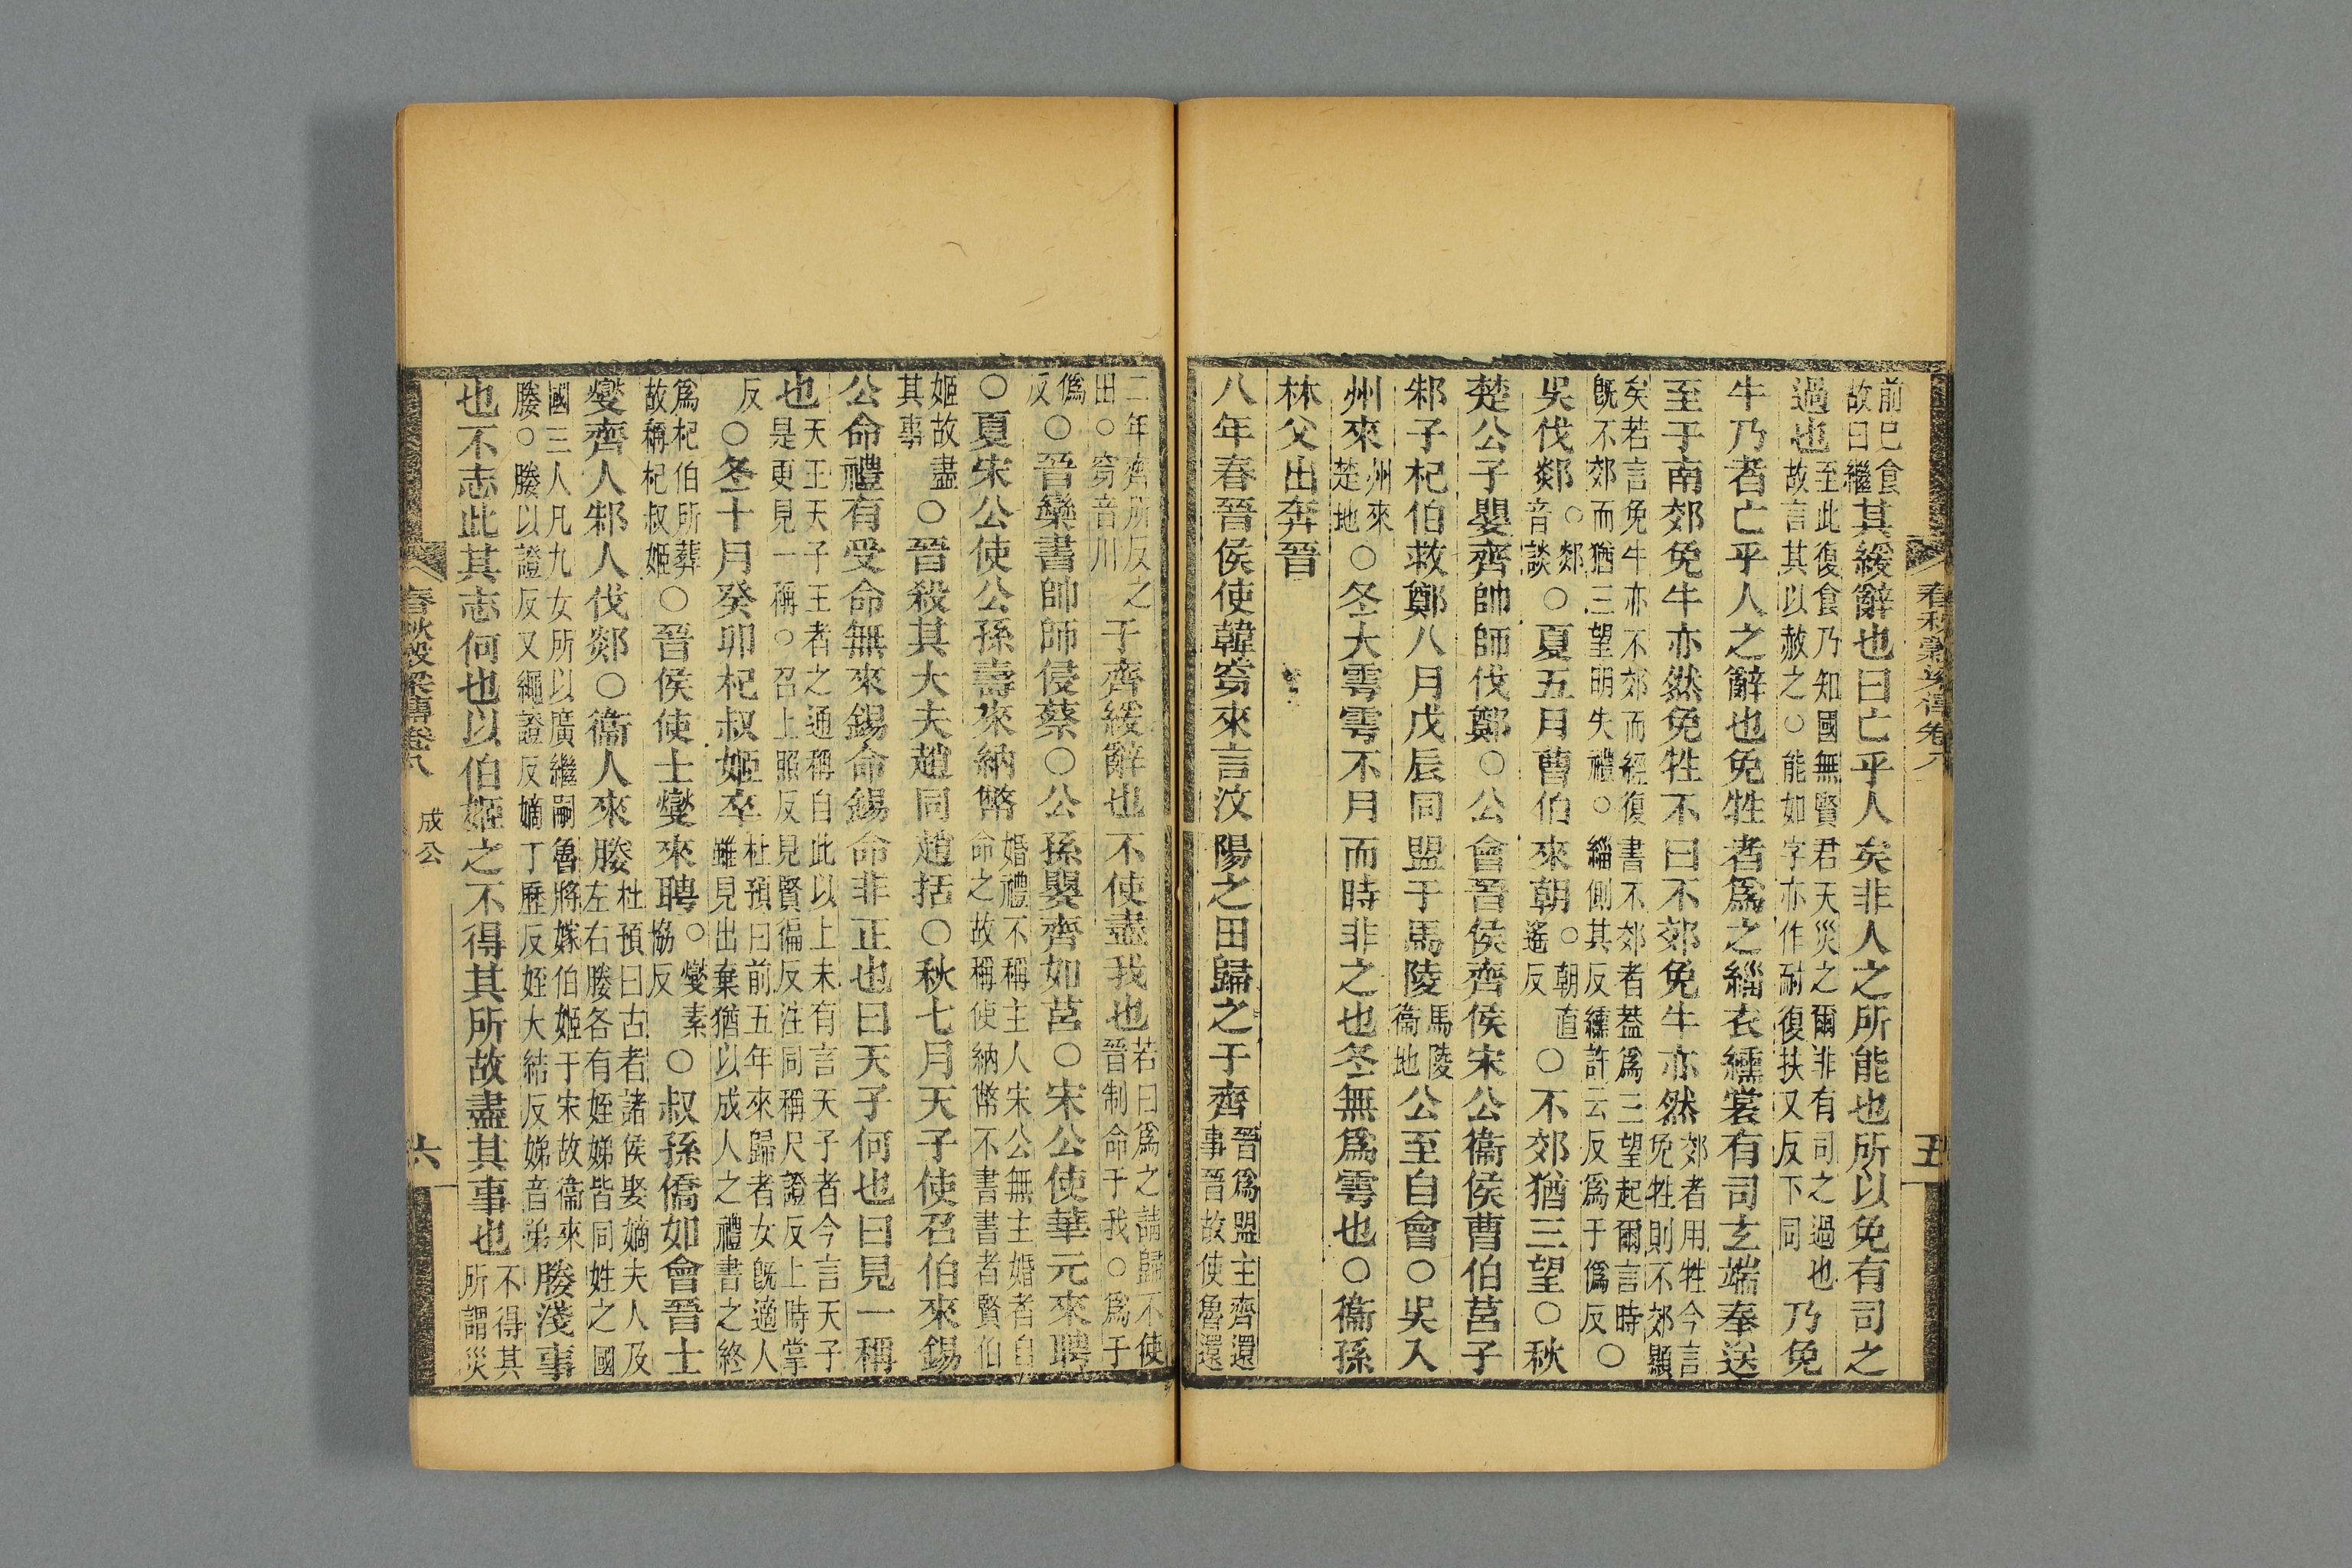 前已食故曰繼其緩辭也曰亡乎人矣非人之所能也所以免有司之
過也至此復食乃知國無賢君天災之爾非有司之過也故言其以赦之○能如字亦作耐復扶又反下同乃免
牛乃者亡乎人之辭也免牲者爲之緇衣纁裳有司玄端奉送
至于南郊免牛亦然免牲不曰不郊免牛亦然郊者用牲今言免牲則不郊顯
矣若言免牛亦不郊而經復書不郊者葢爲三望起爾言時既不郊而猶三望明失禮○緇側其反纁許云反爲于僞反○
吳伐郯○郯音談○夏五月曹伯來朝○朝直遙反○不郊猶三望○秋
楚公子嬰齊帥師伐鄭○公會晉侯齊侯宋公衞侯曹伯莒子
邾子杞伯救鄭八月戊辰同盟于馬陵馬陵衞地公至自會○吳入
州來州來楚地○冬大雩雩不月而時非之也冬無爲雩也○衞孫
林父出奔晉
八年春晉侯使韓穿來言汶陽之田歸之于齊晉爲盟主齊還事晉故使魯還
二年齊所反之田○穿音川于齊緩辭也不使盡我也若曰爲之請歸不使晉制命于我○爲于
僞反○晉欒書帥師侵蔡○公孫嬰齊如莒○宋公使華元來聘
○夏宋公使公孫壽來納幣婚禮不稱主人宋公無主婚者自命之故稱使納幣不書書者賢伯
姬故盡其事○晉殺其大夫趙同趙括○秋七月天子使召伯來錫
公命禮有受命無來錫命錫命非正也曰天子何也曰見一稱
也天王天子王者之通稱自此以上未有言天子者今言天子是更見一稱○召上照反見賢徧反注同稱尺證反上時掌
反○冬十月癸卯杞叔姬卒杜預曰前五年來歸者女既適人雖見出棄猶以成人之禮書之終
爲杞伯所葬故稱杞叔姬○晉侯使士燮來聘○燮素協反○叔孫僑如會晉士
燮齊人邾人伐郯○衞人來媵杜預曰古者諸侯娶嫡夫人及左右媵各有姪娣皆同姓之國
國三人凡九女所以廣繼嗣魯將嫁伯姬于宋故衞來媵○媵以證反又繩證反嫡丁歷反姪大結反娣音弟媵淺事
也不志此其志何也以伯姬之不得其所故盡其事也不得其所謂災
春秋穀梁傳卷八
成公
六
五